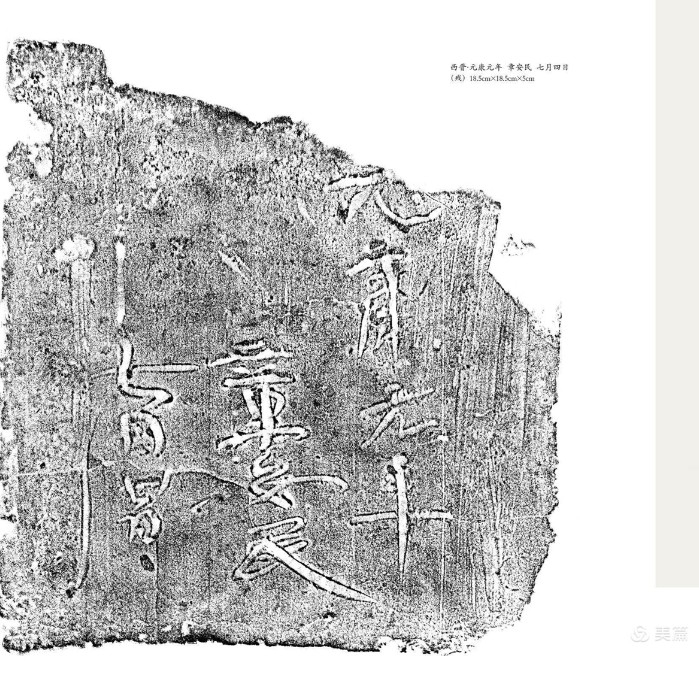 西晋·元康元年 章安民 七月四日
(残) 18.5cm×18.5cm×5cm
元康元年
章安民
七月四日
美篇